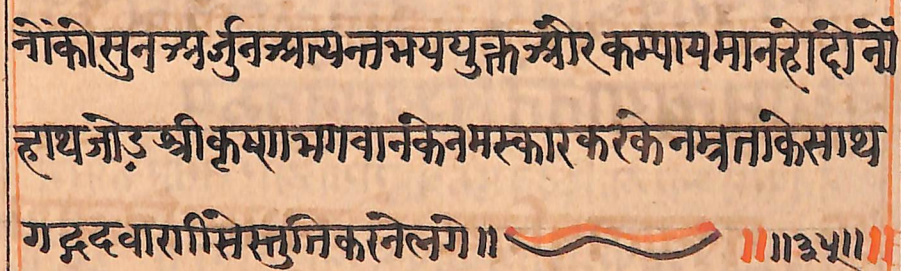 नोंको सुन अर्जुन अत्यन्त भययुक्त और कम्पायमान हो दोनों
हाथ जोड़ श्री कृष्ण भगवानके नमस्कार करके नम्रता के साथ
गद्गद वाणी से स्तुति करने लगे॥ ॥ ॥३५॥ ॥